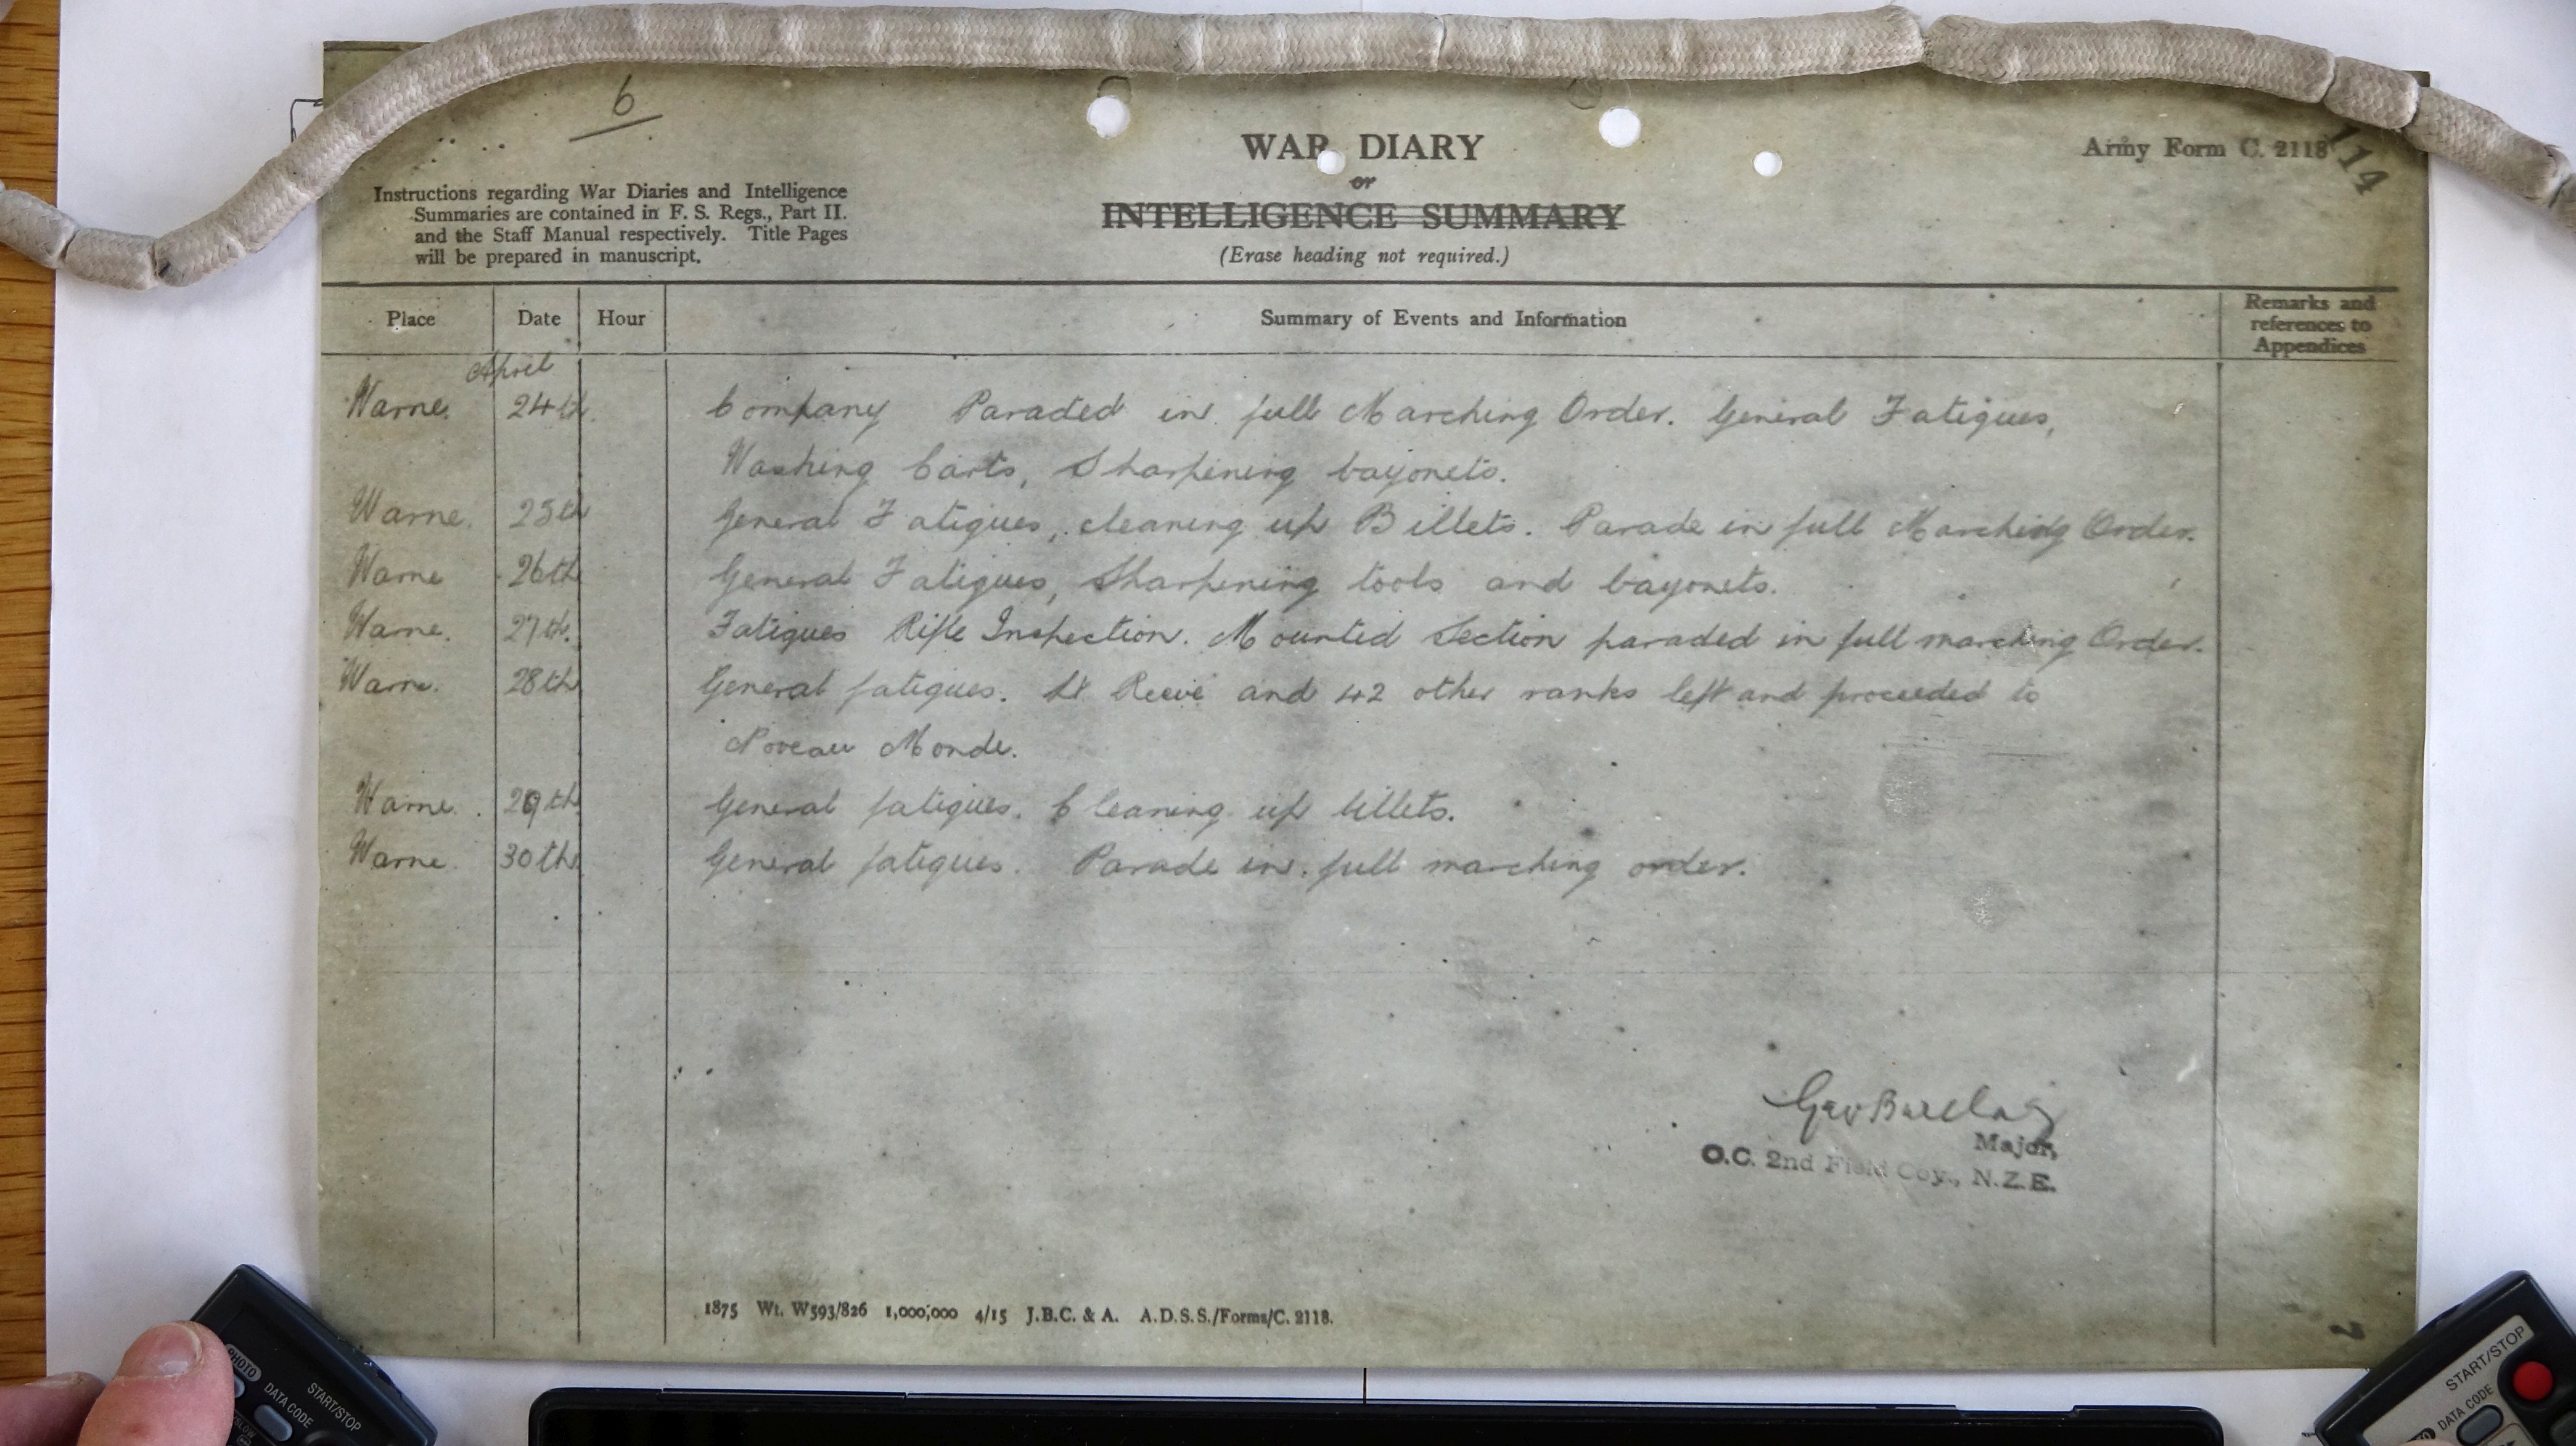 6
WAR DIARY
or
INTELLIGENCE SUMMARY
(Erase heading not required.)
Army Form C. 2118
114
Instructions regarding War Diaries and Intelligence
Summaries are contained in F. S. Regs., Part II.
and the Staff Manual respectively. Title Pages
will be prepared in manuscript.
Place Date Hour Summary of Events and Information Remarks and references to Appendices
April
Warne. 24th. Company Paraded in full Marching Order. General Fatigues,
Washing Carts, Sharpening bayonets.
Warne. 25th General Fatigues, cleaning up Billets. Parade in full Marching Order.
Warne 26th General Fatigues, Sharpening tools and bayonets.
Warne. 27th. Fatigues Rifle Inspection. Mounted Section paraded in full marching Order.
Warne. 28th General fatigues. Lt Reeve and 42 other ranks left and proceeded to
Noveau Monde.
Warne. 29th General fatigues. Cleaning up billets.
Warne. 30th General fatigues. Parade in full marching order.
Geo Barclay
Major,
O.C. 2nd Field Coy., N.Z.E.
1875 Wt. W593/826 1,000,000 4/15 J.B.C. & A. A.D.S.S./Forms/C. 2118.
7
PHOTO
DATA CODE
START/STOP
SLOW
START/STOP
DATA CODE